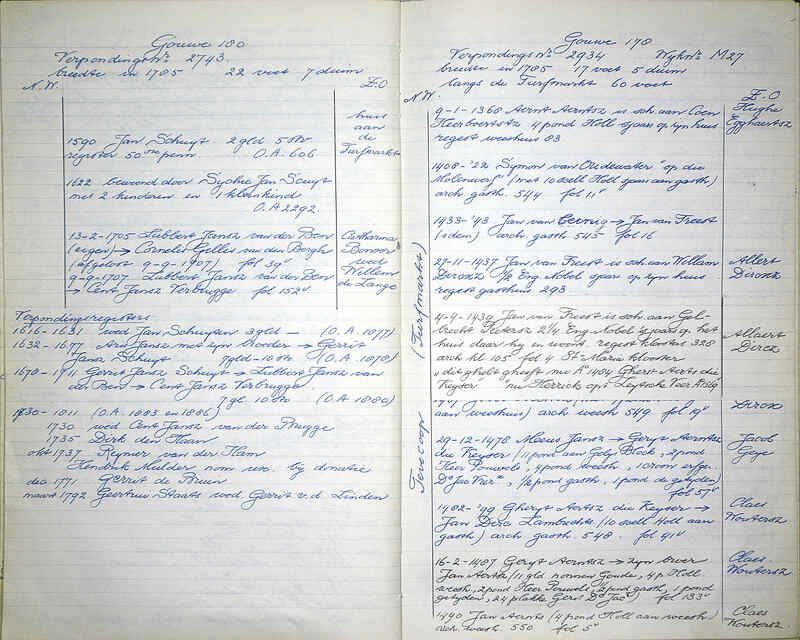 Gouwe 180
Verpondingsno 2743.
breedte in 1705 22 voet 7 duim
N.W. Z.O
huis
aan
de
Turfmarkt
1590 Jan Schuyt 2 gld 5 str
register 50ste penn. O.A. 606
1622 bewoond door Sychie Jan Scuyt
met 2 kinderen en 1 kleinkind
O.A 2292.
13-2-1705 Lubbert Jansz van der Ben
(eigen) → Cornelis Gilles van den Bergh
(afgelost 9-9-1707) fol 39v
9-9-1707 Lubbert Jansz van der Ben
→ Cent Jansz Verbrugge fol 152v
Catharina
Bonser
wed
Willem
de Lange
Verpondingsregisters
1616-1631 wed Jan Schuyten 3 gld — (O.A. 1077)
1632-1677 Arn Jansz met zyn broeder → Gerrit
Jansz Schuyt 7 gld-10 str (O.A. 1078)
1678-1711 Gerrit Jansz Schuyt → Lubbert Jansz van
der Ben → Cent Jansz Verbrugge
7 gl 10 str (O.A 1080)
1730-1811 (O.A. 1083 en 1086)
1730 wed Cent Jansz van der Brugge
1735 Dirk den Haan
okt 1737 Reynier van der Ham
Hendrik Mulder nom uxo. bij donatie
dec 1771 Gerrit de Bruin
maart 1792 Geertrui Staats wed. Gerrit v.d. Linden
Gouwe 178
Verpondings no 2934 Wykno M27
breedte in 1705 17 voet 5 duim
langs de Turfmarkt 60 voet
N.W. Z.O
9-1-1368 Aernt Aerntsz is sch. aan Coen
Heerboertsz 4 pond Holl sjaers op zyn huis
regest weeshuis 83
Hughe
Egghaertsz
1408-'22 Symon van Oudewater "op die
Molenwerf" (met 10 scell Holl sjaers aan gasth)
arch gasth. 544 fol 11v
1433-'43 Jan van → Jan van Treest
(iden) arch gasth 545 fol 16
27-11-1437 Jan van Treest is sch. aan Willem
Dircxz ½ Eng Nobel sjaers op zyn huis
regest gasthuis 293
Allert
Dircxz
4-4-1439 Jan van Treest is sch. aan Gys-
brecht Pietersz 2/4 Eng. Nobel sjaers op het
huis daar hy in woont. regest kloosters 328
arch kl 105 fol 4 St Maria klooster
Allaert
Dircz
(Turfmarkt)
Tevecoop
aan weeshuis) arch weesh 549 fol 19v
Dircxz
29-12-1478 Meeus Jansz → Geryt Aerntsz
die Keyser (11 pond aan Gely Block, 2 pond
Heer Pouwels, 4 pond weesh, 1 croon
½ pond gasth, 1 pond de getyden)
fol 57v
Jacob
Geye
1482-'99 Gheryt Aertsz die Keyser →
Jan Dirc Lambrechts (10 scell Holl aan
gasth) arch gasth. 548. fol 41v
Claes
Woutersz.
16-2-1487 Geryt Aerntsz → zyn broer
Jan Aertsz (11 gld nonnen Gouda, 4 p. Holl
weesh, 2 pond Heer Pouwels, ½ pond gasth, 1 pond
getyden, 24 plakke Geryt Dr Jac) fol 133v
Claes
Woutersz
1490 Jan Aertsz (4 pond Holl aan weesh)
arch. weesh 550 fol 5v
Claes
Woutersz.